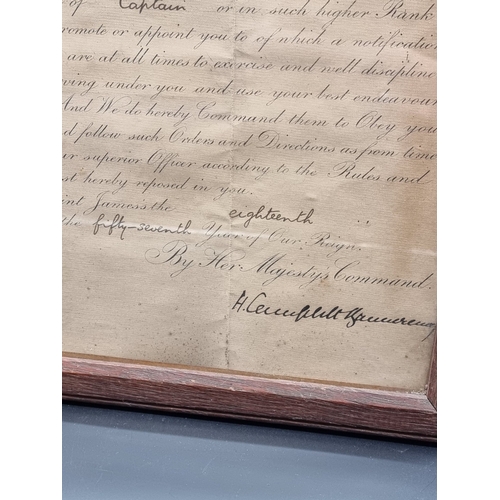 of Captain or in such higher Rank
promote or appoint you to of which a notification
are at all times to exercise and well discipline
ving under you and use your best endeavour
And We do hereby Command them to Obey you
d follow such Orders and Directions as from time
ur superior Officer according to the Rules and
st hereby reposed in you.
int James's the eighteenth
the fifty-seventh Year of Our Reign.
By Her Majesty's Command.
H. Campbell Bannerman